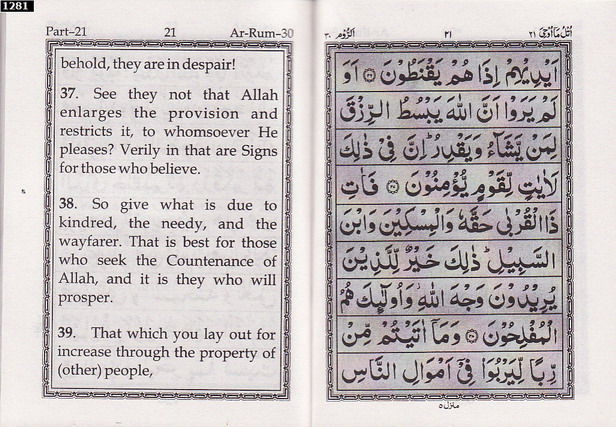 1281
Part–21 21 Ar-Rum–30
behold, they are in despair!
37. See they not that Allah
enlarges the provision and
restricts it, to whomsoever He
pleases? Verily in that are Signs
for those who believe.
38. So give what is due to
kindred, the needy, and the
wayfarer. That is best for those
who seek the Countenance of
Allah, and it is they who will
prosper.
39. That which you lay out for
increase through the property of
(other) people,
اُتْلُ مَآ اُوْحِیَ ٢١ ٢١ اَلرُّوْم ٣٠
اَيْدِيْهِمْ اِذَا هُمْ يَقْنَطُوْنَ ﴿٣٦﴾ اَوَ
لَمْ يَرَوْا اَنَّ اللّٰهَ يَبْسُطُ الرِّزْقَ
لِمَنْ يَّشَآءُ وَيَقْدِرُ ؕ اِنَّ فِيْ ذٰلِكَ
لَاٰيٰتٍ لِّقَوْمٍ يُّؤْمِنُوْنَ ﴿٣٧﴾ فَاٰتِ
ذَا الْقُرْبٰى حَقَّهٗ وَالْمِسْكِيْنَ وَابْنَ
السَّبِيْلِ ؕ ذٰلِكَ خَيْرٌ لِّلَّذِيْنَ
يُرِيْدُوْنَ وَجْهَ اللّٰهِ وَاُولٰٓئِكَ هُمُ
الْمُفْلِحُوْنَ ﴿٣٨﴾ وَمَآ اٰتَيْتُمْ مِّنْ
رِّبًا لِّيَرْبُوَا۟ فِيْٓ اَمْوَالِ النَّاسِ
منزل ٥